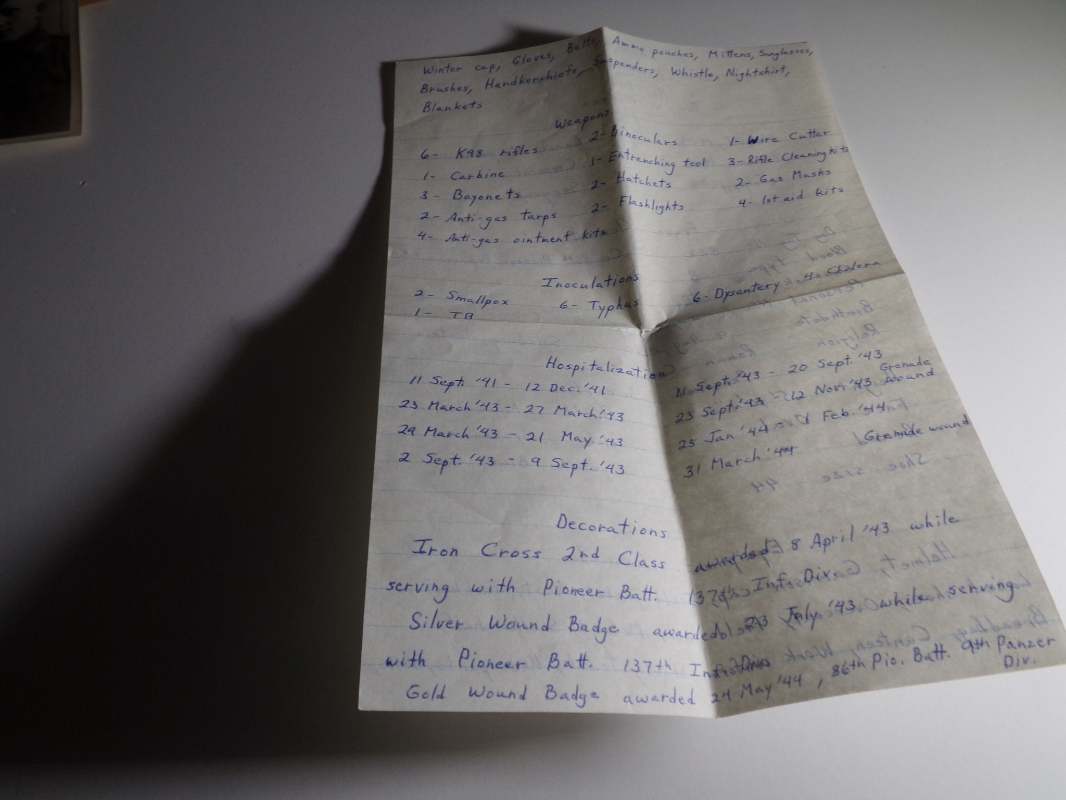 Winter cap, Gloves, Belts, Ammo pouches, Mittens, Sunglasses,
Brushes, Handkerchiefs, Suspenders, Whistle, Nightshirt,
Blankets
Weapons
6- K98 rifles 2- Binoculars 1- Wire Cutter
1- Carbine 1- Entrenching tool 3- Rifle Cleaning kits
3- Bayonets 2- Hatchets 2- Gas Masks
2- Anti-gas tarps 2- Flashlights 4- 1st aid kits
4- Anti-gas ointment kits
Inoculations
2- Smallpox 6- Typhus 6- Dysantery 4- Cholera
1- TB
Hospitalization
11 Sept. '41 - 12 Dec. '41 Sept. '43 - 20 Sept. '43
23 March '43 - 27 March '43 23 Sept. '43 - 12 Nov. '43 Grenade Wound
29 March '43 - 21 May. '43 25 Jan '44 - Feb. '44
2 Sept. '43 - 9 Sept. '43 31 March '44 Grenade wound
Decorations
Iron Cross 2nd Class awarded 8 April '43 while
serving with Pioneer Batt. 137th Inf. Div.
Silver Wound Badge awarded 23 July '43 while serving
with Pioneer Batt. 137th Inf. Div.
Gold Wound Badge awarded 24 May '44, 86th Pio. Batt. 9th Panzer
Div.